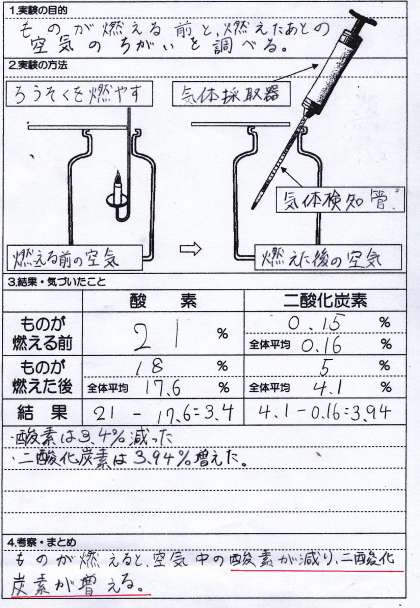 1.実験の目的
ものが燃える前と、燃えたあとの
空気のちがいを調べる。
2.実験の方法
ろうそくを燃やす
気体採取器
気体検知管
燃える前の空気
燃えた後の空気
3.結果・気づいたこと
酸素 二酸化炭素
ものが燃える前 21 % 0.15 %
全体平均 0.16 %
ものが燃えた後 18 % 5 %
全体平均 17.6 % 全体平均 4.1 %
結果 21 - 17.6=3.4 4.1-0.16=3.94
・酸素は3.4%減った
・二酸化炭素は3.94%増えた。
4.考察・まとめ
ものが燃えると、空気中の酸素が減り、二酸化
炭素が増える。